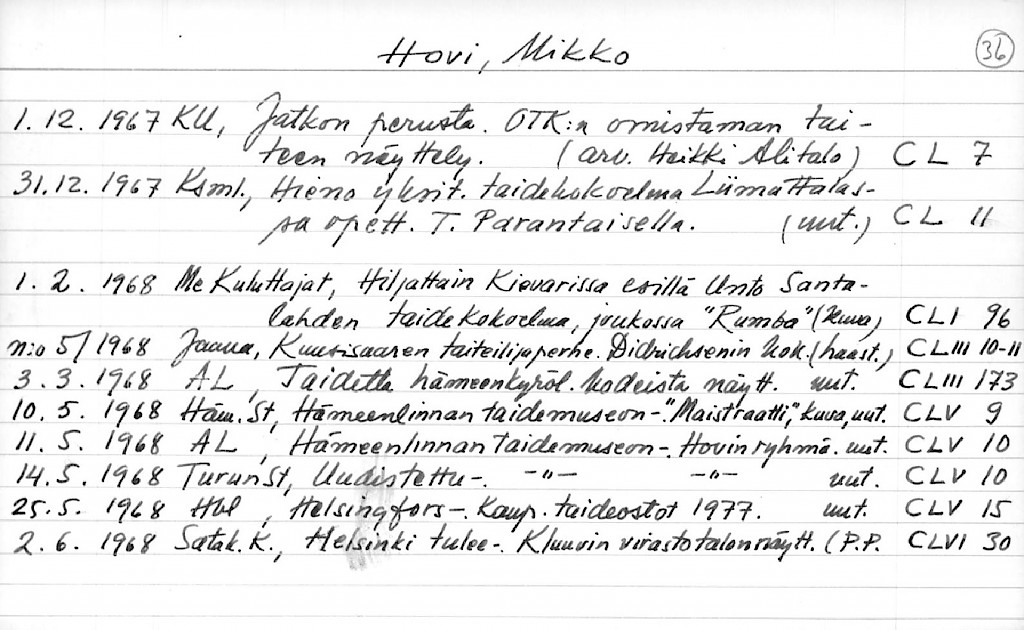 Hovi, Mikko 36
1. 12. 1967 KU, Jatkon perusta. OTK:n omistaman tai-
teen näyttely. (arv. Heikki Alitalo) CL 7
31.12. 1967 Ksml., Hieno yksit. taidekokoelma Liimattalas-
sa opett. T. Parantaisella. (uut.) CL 11
1. 2. 1968 Me Kuluttajat, Hiljattain Kievarissa esillä Unto Santa-
lahden taidekokoelma, joukossa "Rumba" (kuva) CLI 96
n:o 5/1968 Jaana, Kuusisaaren taiteilijaperhe. Didrichsenin kok. (haast.) CLIII 10-11
3. 3. 1968 AL, Taidetta hämeenkyröl. kodeista näytt. uut. CLIII 173
10. 5. 1968 Häm. St, Hämeenlinnan taidemuseon-. "Maistraatti", kuva, uut. CLV 9
11. 5. 1968 AL, Hämeenlinnan taidemuseon-. Hovin ryhmä. uut. CLV 10
14. 5. 1968 Turun St, Uudistettu-. -"- -"- uut. CLV 10
25. 5. 1968 Hbl, Helsingfors-. Kaup. taideostot 1977. uut. CLV 15
2. 6. 1968 Satak. K., Helsinki tulee-. Kluuvin virastotalon näytt. (P.P. CLVI 30